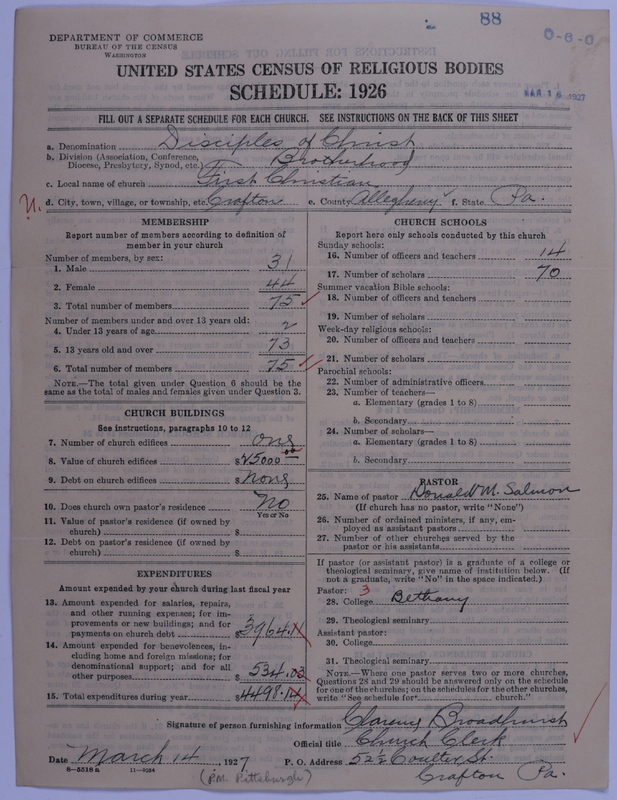 88
0-6-0
DEPARTMENT OF COMMERCE
BUREAU OF THE CENSUS
WASHINGTON
UNITED STATES CENSUS OF RELIGIOUS BODIES
SCHEDULE: 1926
MAR 16 1927
FILL OUT A SEPARATE SCHEDULE FOR EACH CHURCH. SEE INSTRUCTIONS ON THE BACK OF THIS SHEET
a. Denomination Disciples of Christ
b. Division (Association, Conference, Diocese, Presbytery, Synod, etc.) Brotherhood
c. Local name of church First Christian
d. City, town, village, or township, etc. Crafton e. County Allegheny f. State Pa.
MEMBERSHIP
Report number of members according to definition of
member in your church
Number of members, by sex:
1. Male 31
2. Female 44
3. Total number of members 75
Number of members under and over 13 years old:
4. Under 13 years of age 2
5. 13 years old and over 73
6. Total number of members 75
NOTE.—The total given under Question 6 should be the
same as the total of males and females given under Question 3.
CHURCH BUILDINGS
See instructions, paragraphs 10 to 12
7. Number of church edifices one
8. Value of church edifices $25000 00
9. Debt on church edifices $none
10. Does church own pastor's residence No
Yes or No
11. Value of pastor's residence (if owned by
church) $
12. Debt on pastor's residence (if owned by
church) $
EXPENDITURES
Amount expended by your church during last fiscal year
13. Amount expended for salaries, repairs,
and other running expenses; for im-
provements or new buildings; and for
payments on church debt $3964.11
14. Amount expended for benevolences, in-
cluding home and foreign missions; for
denominational support; and for all
other purposes $534.03
15. Total expenditures during year $4498.14
CHURCH SCHOOLS
Report here only schools conducted by this church
Sunday schools:
16. Number of officers and teachers 14
17. Number of scholars 70
Summer vacation Bible schools:
18. Number of officers and teachers
19. Number of scholars
Week-day religious schools:
20. Number of officers and teachers
21. Number of scholars
Parochial schools:
22. Number of administrative officers
23. Number of teachers—
a. Elementary (grades 1 to 8)
b. Secondary
24. Number of scholars—
a. Elementary (grades 1 to 8)
b. Secondary
PASTOR
25. Name of pastor Donald M. Salmon
(If church has no pastor, write "None")
26. Number of ordained ministers, if any, em-
ployed as assistant pastors
27. Number of other churches served by the
pastor or his assistants
If pastor (or assistant pastor) is a graduate of a college or
theological seminary, give name of institution below. (If
not a graduate, write "No" in the space indicated.)
Pastor: 3
28. College Bethany
29. Theological seminary
Assistant pastor:
30. College
31. Theological seminary
NOTE.—Where one pastor serves two or more churches,
Questions 28 and 29 should be answered only on the schedule
for one of the churches; on the schedules for the other churches,
write "See schedule for church."
Signature of person furnishing information Clarence Broadhurst
Official title Church Clerk
Date March 14, 1927 P. O. Address 52½ Coulter St.
8—5518 a 11—9284
(P.M. Pittsburgh) Crafton Pa.